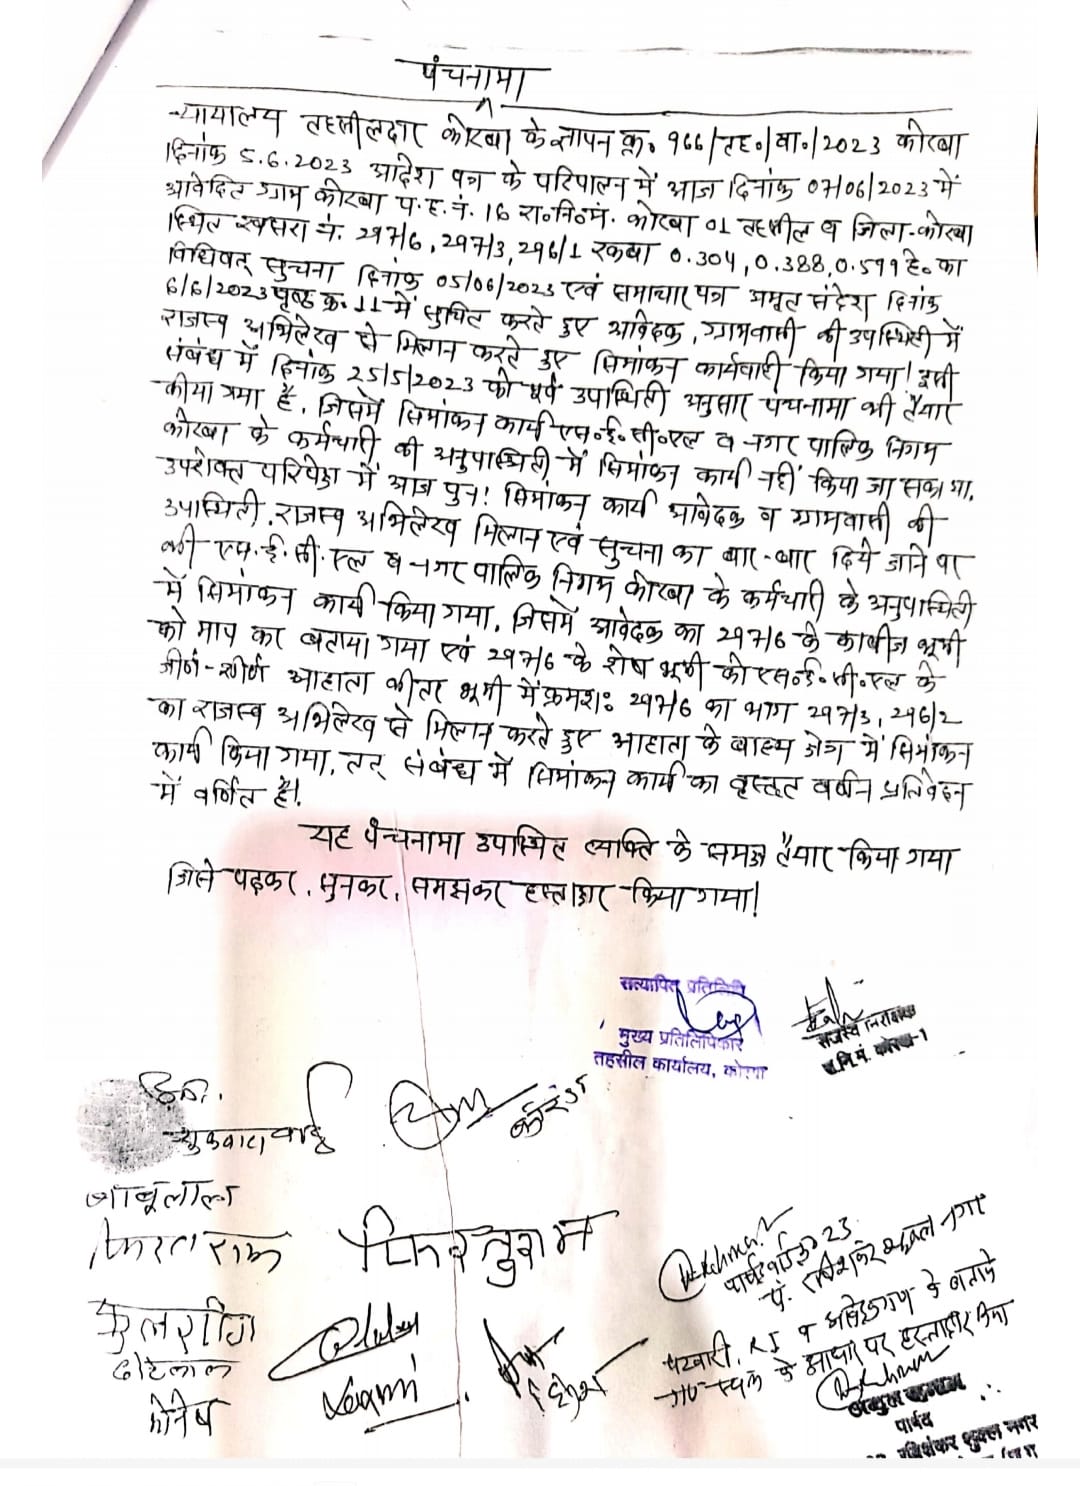 पंचनामा
न्यायालय तहसीलदार कोरबा के ज्ञापन क्र. 966/तह./वा./2023 कोरबा
दिनांक 5.6.2023 आदेश पत्र के परिपालन में आज दिनांक 07/06/2023 में
आवेदित ग्राम कोरबा प.ह.नं. 16 रा.नि.मं. कोरबा 01 तहसील व जिला-कोरबा
स्थित खसरा नं. 297/6, 297/3, 296/1 रकबा 0.304, 0.388, 0.599 हे. का
विधिवत् सुचना दिनांक 05/06/2023 एवं समाचार पत्र अमृत संदेश दिनांक
6/6/2023 पृष्ठ क्र. 11 में सुचित करते हुए आवेदक, ग्रामवासी की उपस्थिती में
राजस्व अभिलेख से मिलान करते हुए सिमांकन कार्यवाही किया गया! इसी
संबंध में दिनांक 25/5/2023 को पूर्व उपस्थिती अनुसार पंचनामा भी तैयार
कीया गया है, जिसमें सिमांकन कार्य एस.ई.सी.एल व नगर पालिक निगम
कोरबा के कर्मचारी की अनुपास्थिती में सिमांकन कार्य नहीं किया जा सका था.
उपरोक्त परिपेक्ष में आज पुनः सिमांकन कार्य आवेदक व ग्रामवासी की
उपास्थिती, राजस्व अभिलेख मिलान एवं सुचना का बार-बार दिये जाने पर
की एस.ई.सी.एल व नगर पालिक निगम कोरबा के कर्मचारी के अनुपास्थिती
में सिमांकन कार्य किया गया, जिसमें आवेदक का 297/6 के काबीज भूमी
को माप कर बताया गया एवं 297/6 के शेष भूमी को एस.ई.सी.एल के
जीर्ण-शीर्ण आहाता भीतर भूमी में क्रमशः 297/6 का भाग 297/3, 296/2
का राजस्व अभिलेख से मिलान करते हुए आहाता के बाह्य क्षेत्र में सिमांकन
कार्य किया गया, तत् संबंध में सिमांकन कार्य का वृस्तृत वर्णन प्रतिवेदन
में वर्णित है!
यह पंचनामा उपास्थित व्यक्ति के समक्ष तैयार किया गया
जिसे पढ़कर, सुनकर, समझकर हस्ताक्षर किया गया!
सत्यापित प्रतिलिपि
मुख्य प्रतिलिपिकार
तहसील कार्यालय, कोरबा
राजस्व निरीक्षक
रा.नि.मं. कोरबा-1
बाबूलाल
फिरतुराम
छोटेलाल
पार्षद वार्ड क्र 23
पं. रविशंकर शुक्ल नगर
पटवारी, RI व आवेदकगण के बताये
गए स्थल के आधार पर हस्ताक्षर किया
अब्दुल रहमान
पार्षद
पं. रविशंकर शुक्ल नगर